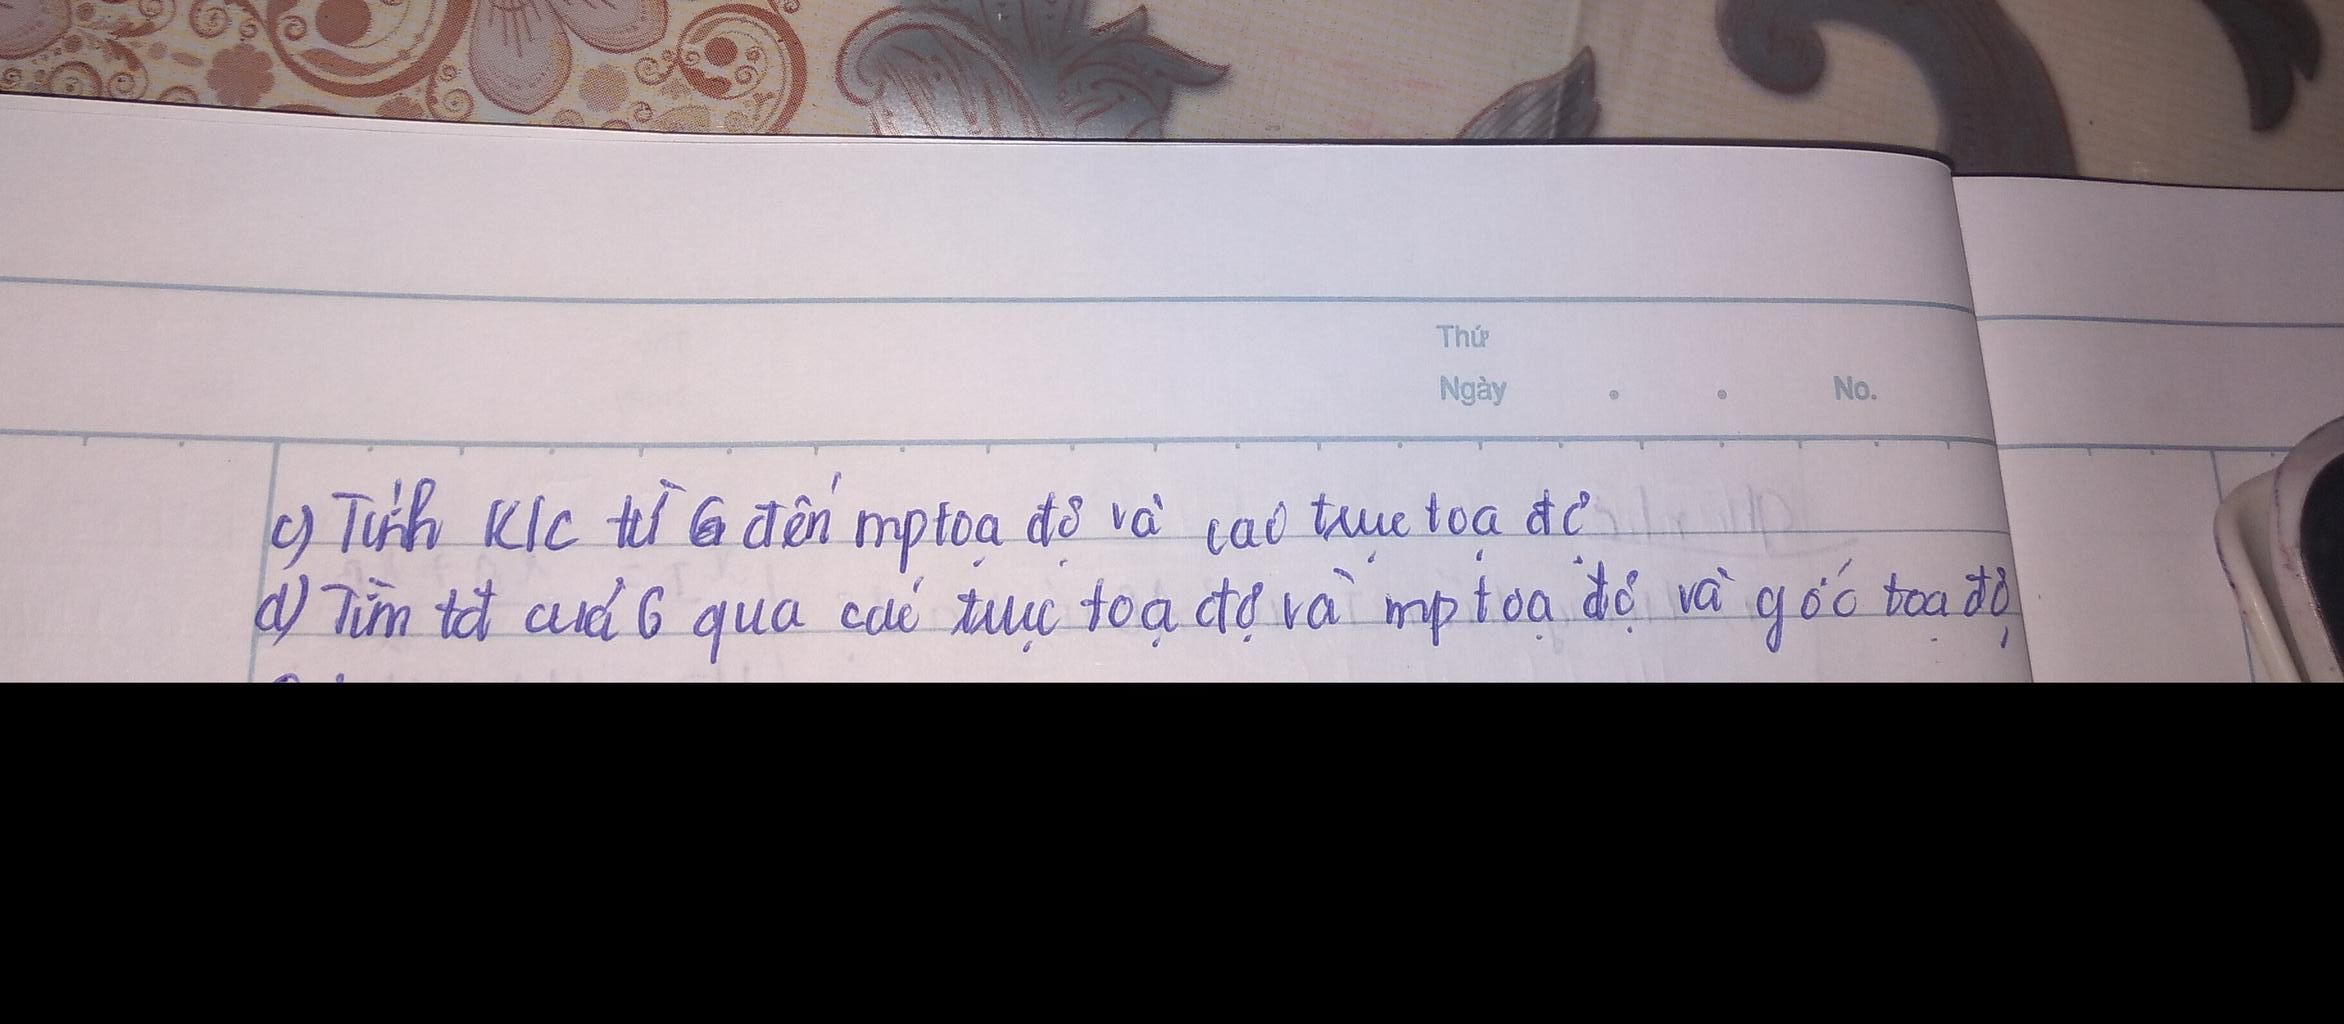 Thứ
Ngày . . No.
c) Tính K/c từ G đến mp toạ độ và các trục toạ độ
d) Tìm tđ của G qua các trục toạ độ và mp toạ độ và gốc toạ độ